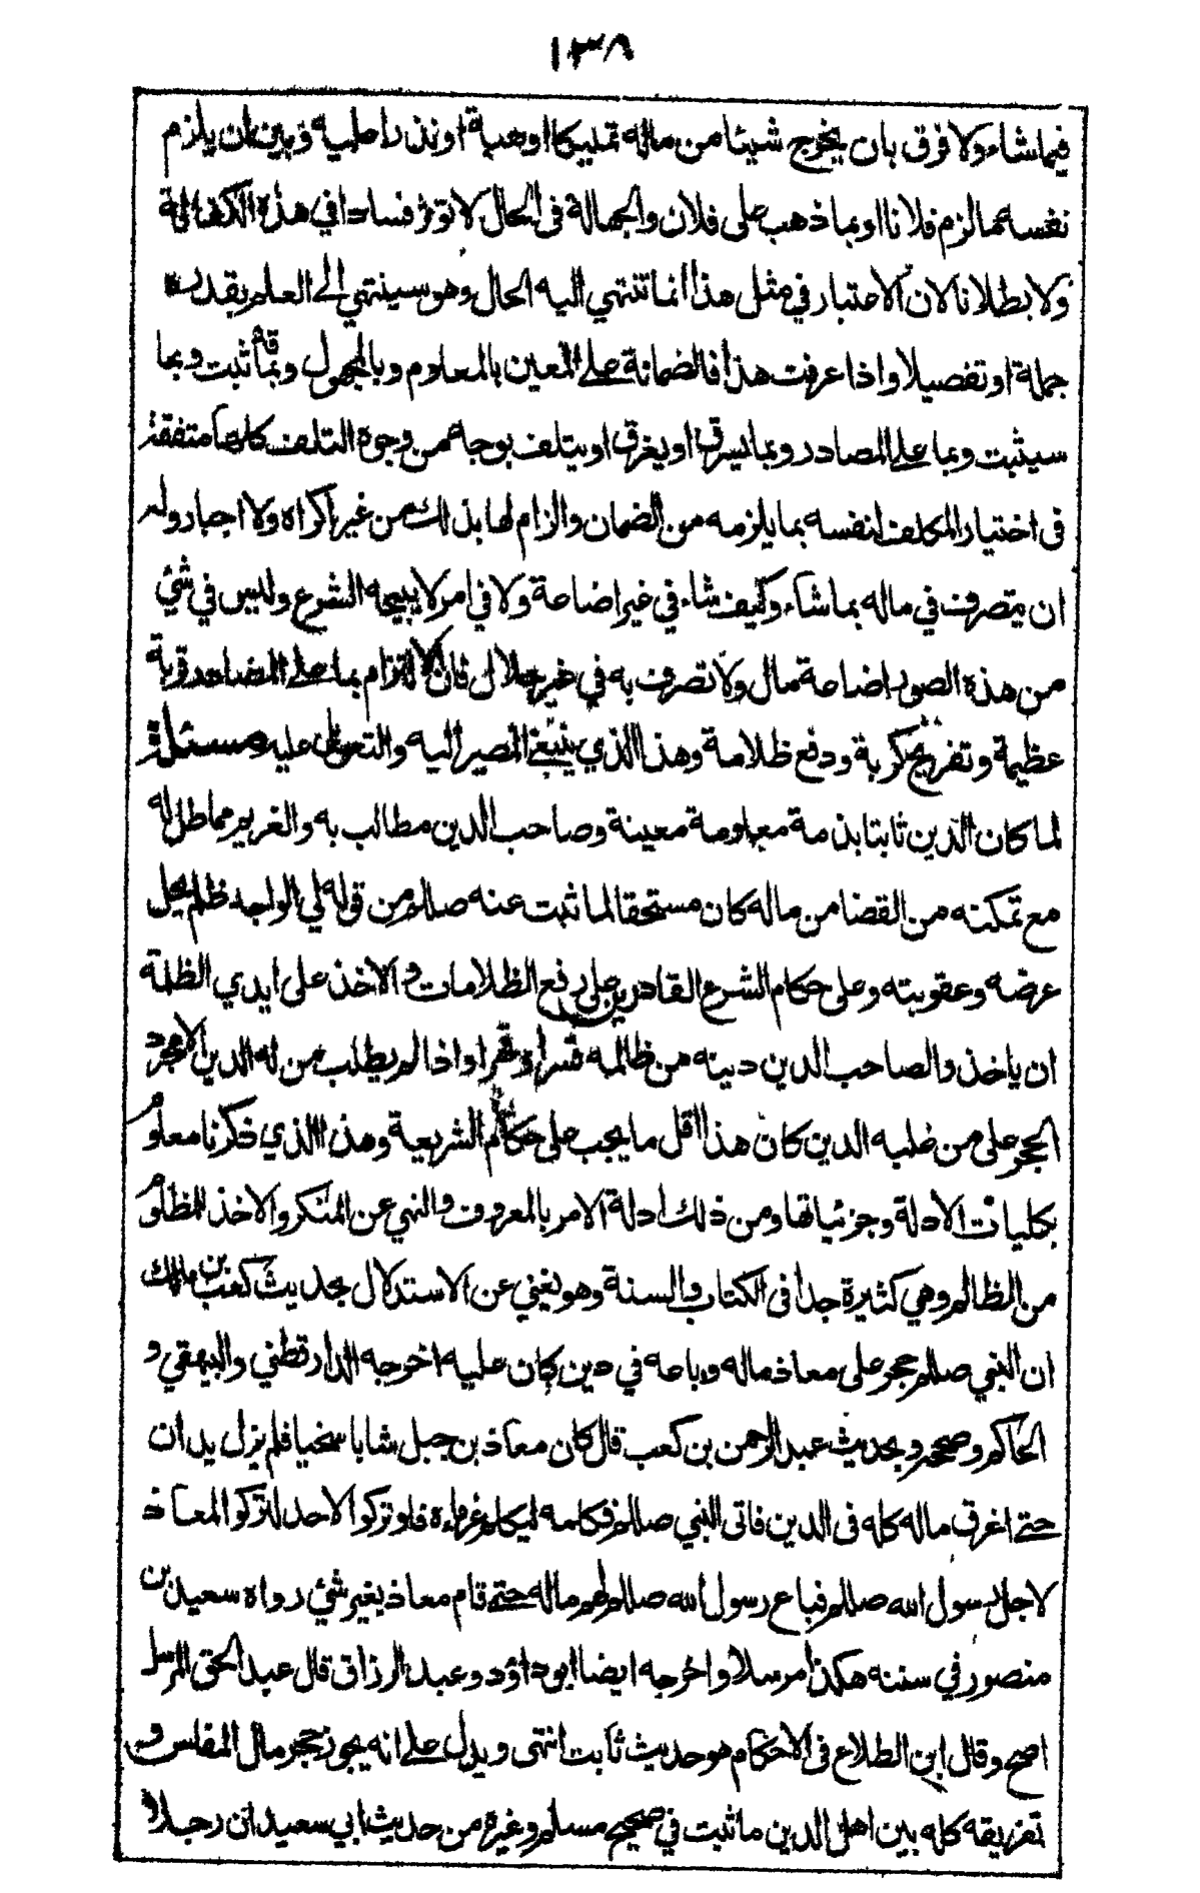 ١٣٨
فيما شاء ولا فرق بان يخرج شيئا من ماله تمليكا او هبة او نذرا طيبه وبين ان يلزم
نفسه عما لزم فلانا او بما ذهب على فلان والجهالة فى الحال لا توثر فسادا في هذه الكفالة
ولا بطلانا لان الاعتبار في مثل هذا انما تنتهي اليه الحال وهو سينتهي الى العلم بقدره
جملة او تفصيلا واذا عرفت هذا فالضمانة على المعين بالمعلوم وبالمجهول وبما قد ثبت وبما
سيثبت وبما على المصادر وبما يسرق او يغرق او يتلف بوجه من وجوه التلف كلها متفقة
فى اختيار المكلف لنفسه بما يلزمه من الضمان والزام لها بذلك من غير اكراه ولا اجبار وله
ان يتصرف في ماله بما شاء وكيف شاء في غير اضاعة ولا في امر لا يبيحه الشرع وليس في شئ
من هذه الصور اضاعة مال ولا تصرف به في غير حلال فان الالتزام بما على المصادر قربة
عظيمة وتفريج كربة ودفع ظلامة وهذا الذي ينبغي المصير اليه والتعويل عليه مسئلة
لما كان الدين ثابتا بذمة معلومة معينة وصاحب الدين مطالب به والغريم مماطل له
مع تمكنه من القضا من ماله كان مستحقا لما ثبت عنه صللم من قوله لي الواجد ظلم يحل
عرضه وعقوبته وعلى حكام الشرع القادرين على رفع الظلامات والاخذ على ايدي الظلمة
ان ياخذوا لصاحب الدين دينه من ظالمه قسرا وقهرا واذا لم يطلب من له الدين الا مجرد
الحجر على من عليه الدين كان هذا اقل ما يجب على حكام الشريعة وهذا الذي ذكرنا معلوم
بكليات الادلة وجزئياتها ومن ذلك ادلة الامر بالمعروف والنهي عن المنكر والاخذ للمظلوم
من الظالم وهي كثيرة جدا فى الكتاب والسنة وهو يغني عن الاستدلال بحديث كعب بن مالك
ان النبي صللم حجر على معاذ ماله وباعه في دين كان عليه اخرجه الدارقطني والبيهقي و
الحاكم وصححه وبحديث عبد الرحمن بن كعب قال كان معاذ بن جبل شابا سخيا فلم يزل يدان
حتى اغرق ماله كله فى الدين فاتى النبي صللم فكلمه ليكلم غرماءه فلو تركوا لاحد لتركوا لمعاذ
لاجل رسول الله صللم فباع رسول الله صللم لهم ماله حتى قام معاذ بغير شئ رواه سعيد بن
منصور في سننه هكذا مرسلا واخرجه ايضا ابو داؤد وعبد الرزاق قال عبد الحق المرسل
اصح وقال ابن الطلاع فى الاحكام هو حديث ثابت انتهى ويدل على انه يجوز حجر مال المفلس و
تفريقه كله بين اهل الدين ما ثبت في صحيح مسلم وغيره من حديث ابي سعيد ان رجلا